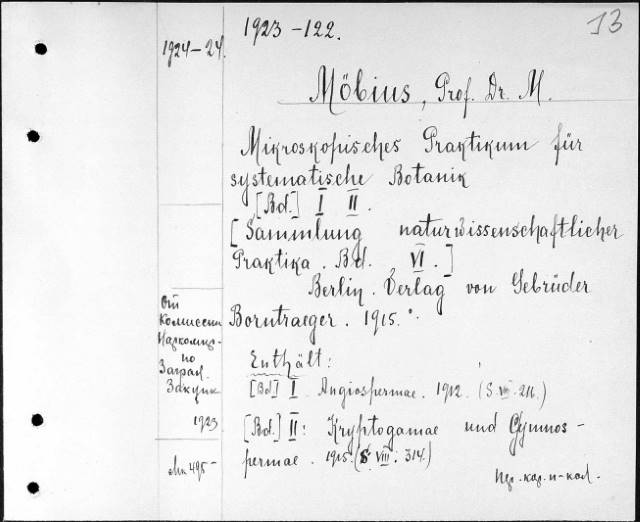 1923-122.
13
1924-24.
Möbius, Prof. Dr. M.
Mikroskopisches Praktikum für
systematische Botanik
[Bd.] I II.
[Sammlung naturwissenschaftlicher
Praktika. Bd. VI.]
Berlin. Verlag von Gebrüder
Borntraeger. 1915.
Enthält:
[Bd] I Angiospermae. 1912. (S. VIII. 216.)
[Bd.] II: Kryptogamae und Gymnos-
permae. 1915. (S. VIII. 314.)
От
Комиссии
по
Заграл.
Закупк
1923
495-